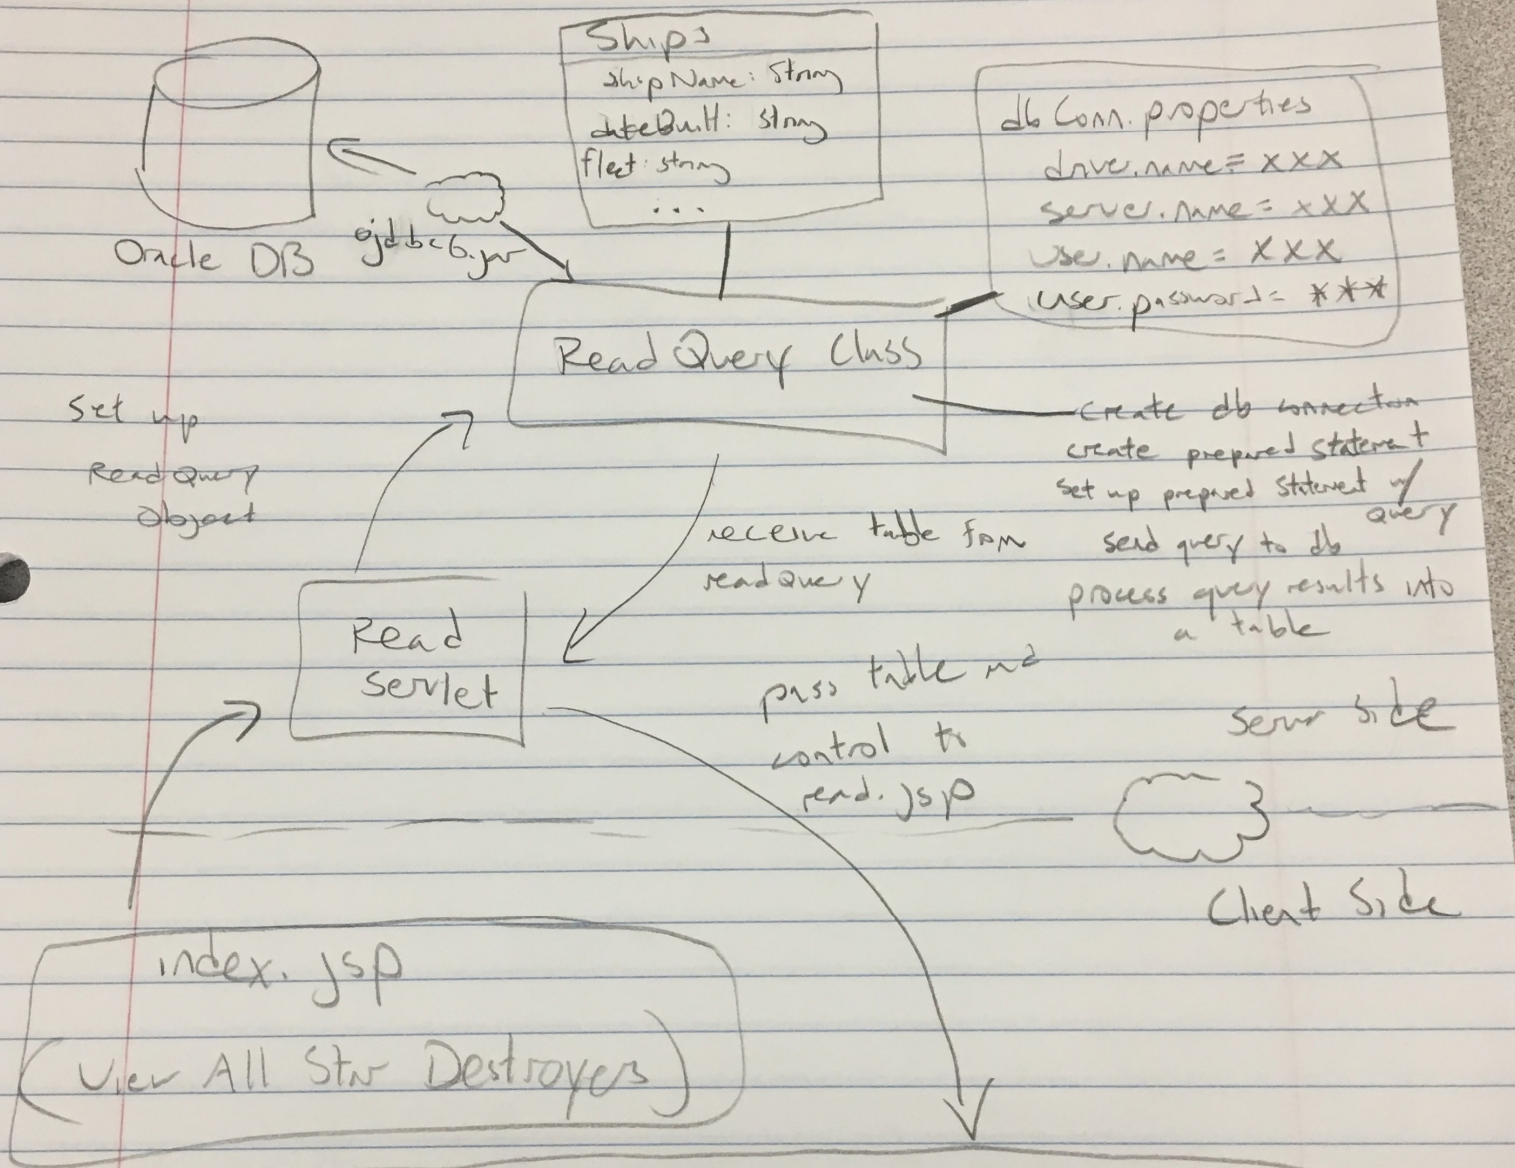 Ships
shipName: String
dateBuilt: String
fleet: string
...
dbConn.properties
driver.name = xxx
server.name = xxx
user.name = xxx
user.password = ***
Oracle DB
ojdbc6.jar
ReadQuery Class
set up
ReadQuery
Object
create db connection
create prepared statement
set up prepared statement w/
query
send query to db
process query results into
a table
receive table from
readQuery
Read
Servlet
pass table and
control to
read.jsp
Server Side
Client Side
index.jsp
View All Star Destroyers